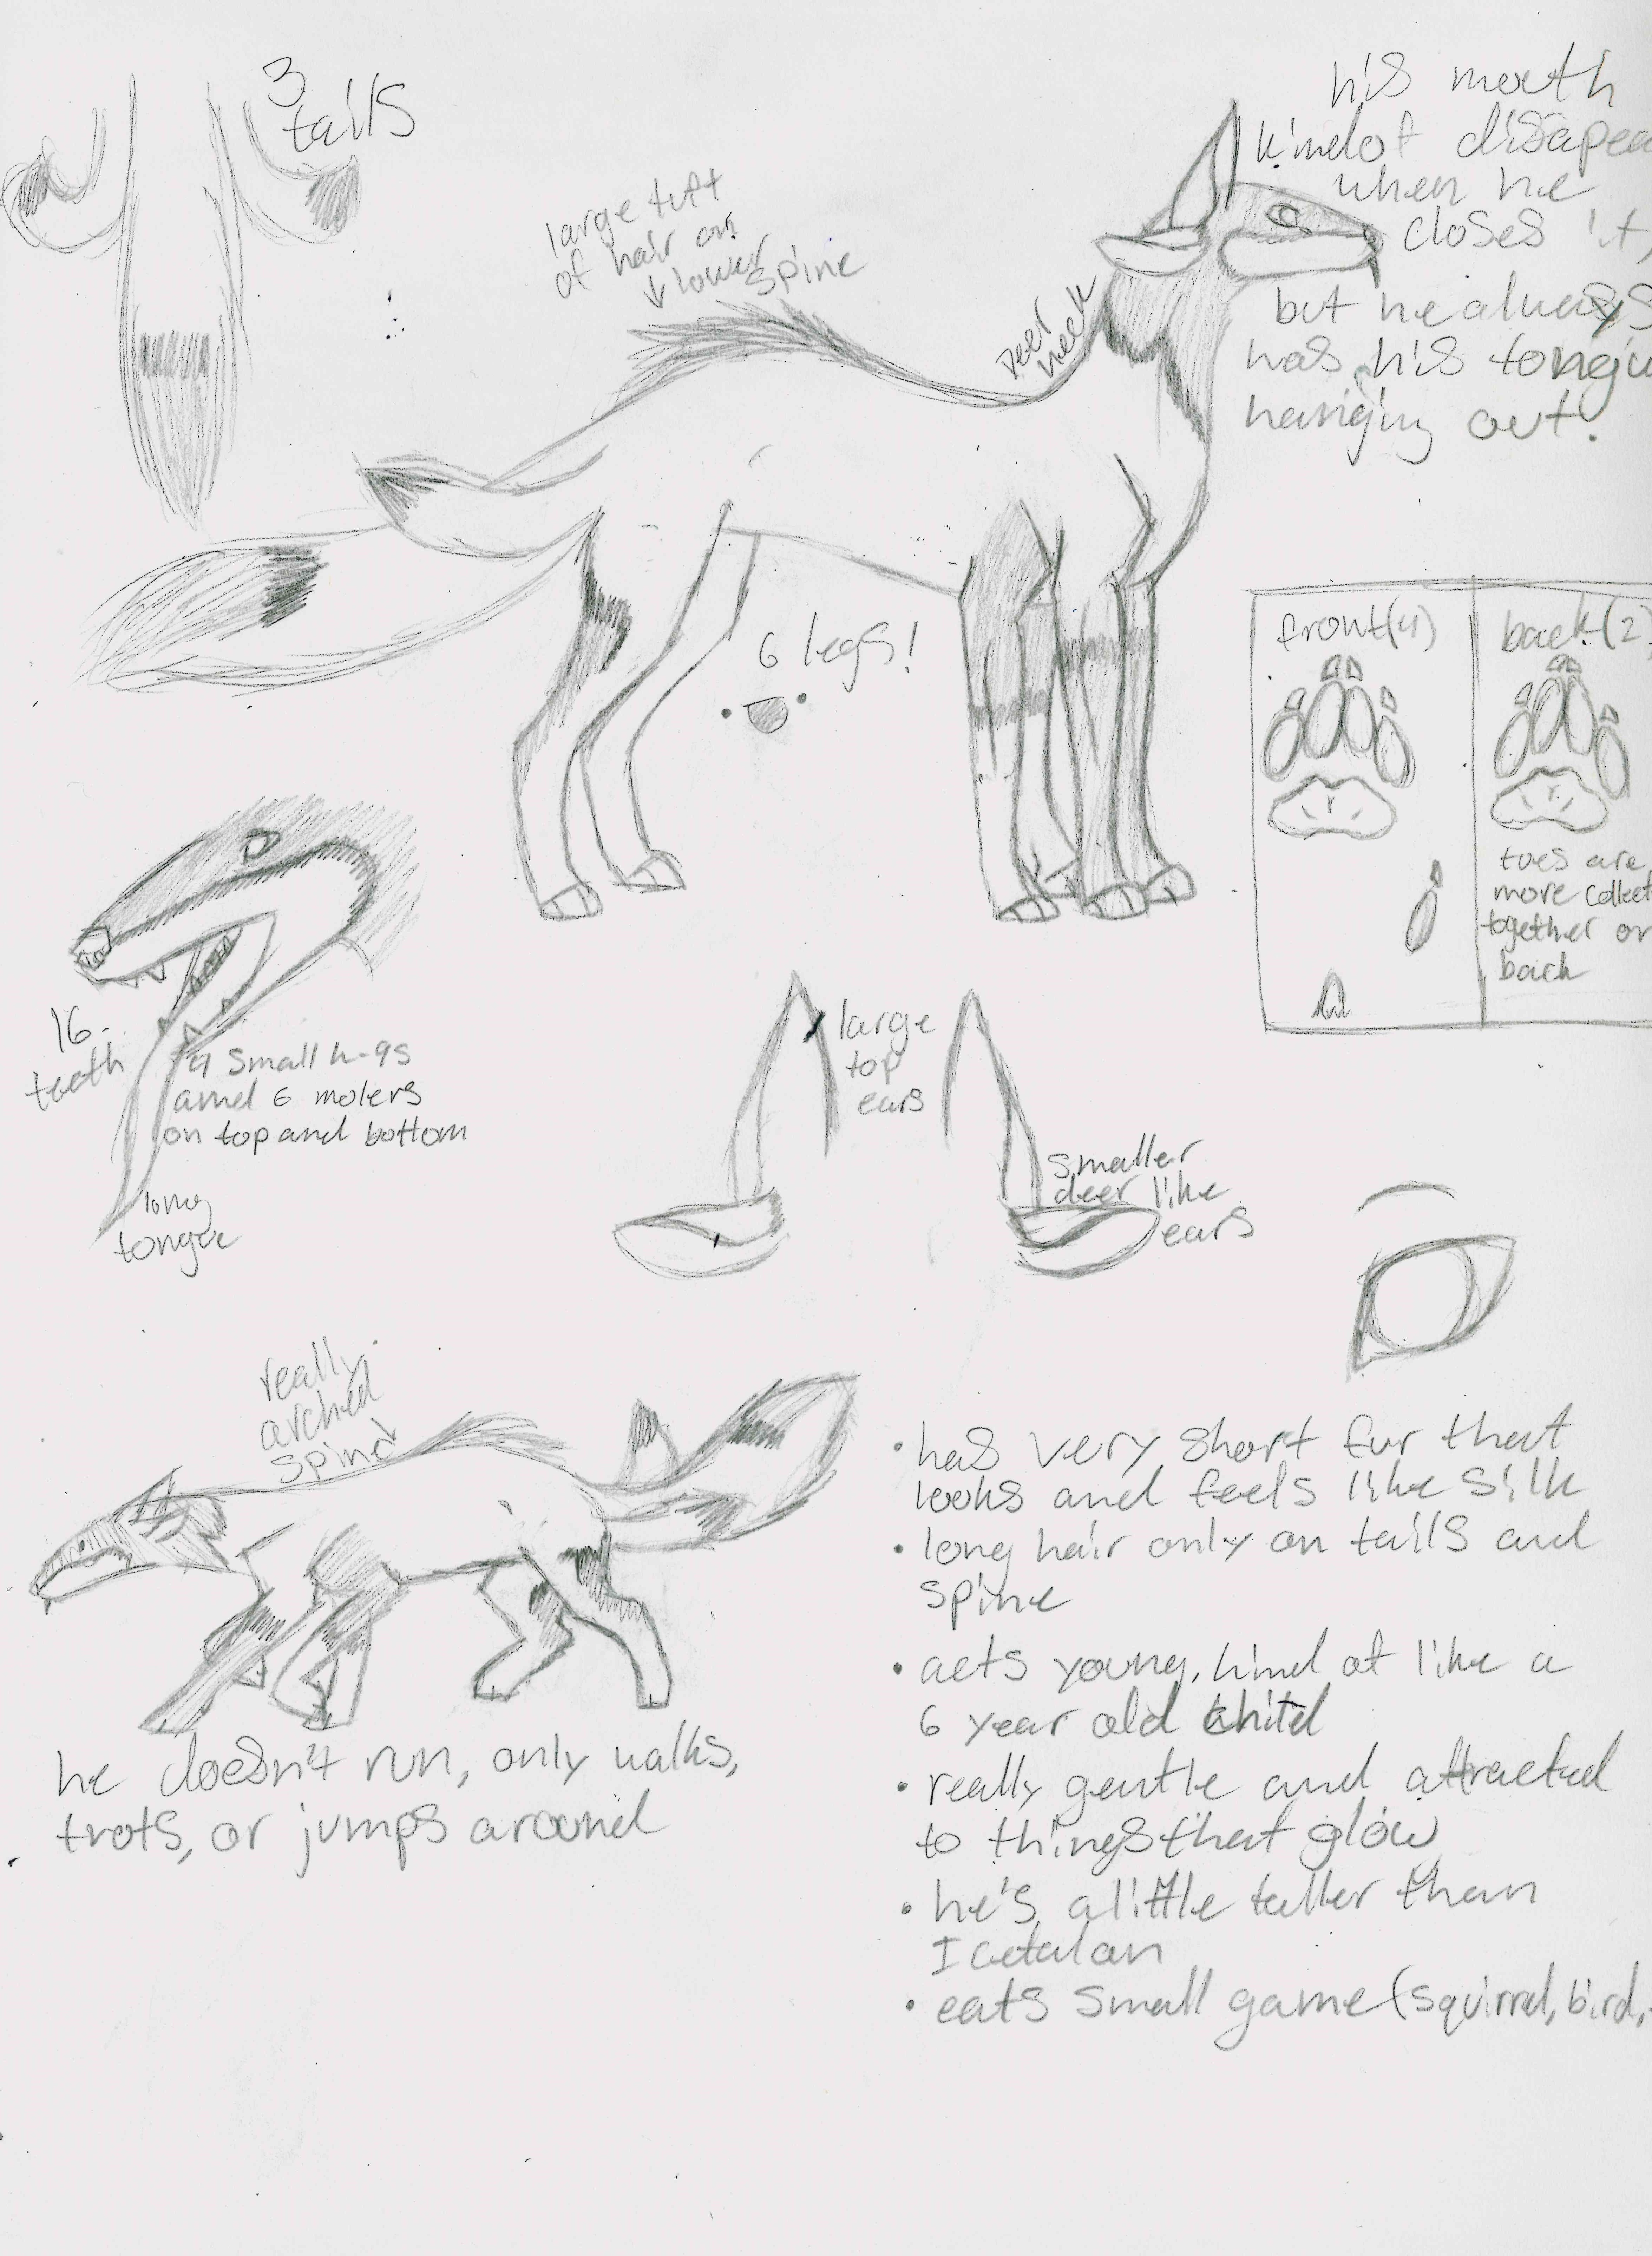 3
tails
large tuft
of hair on
lower
spine
Deer
neck
his mouth
kindof disapea
when he
closes it,
but he always
has his tongu
hanging out.
6 legs!
front(4)
back(2
toes are
more collect
together on
back
16
teeth
4 small k-9s
and 6 molers
on top and bottom
long
tongue
large
top
ears
smaller
deer like
ears
really
arched
spine
he doesn't run, only walks,
trots, or jumps around
• has very short fur that
looks and feels like silk
• long hair only on tails and
spine
• acts young, kind of like a
6 year old child
• really gentle and attracted
to things that glow
• he's a little taller than
Icetalan
• eats small game (squirrel, bird,